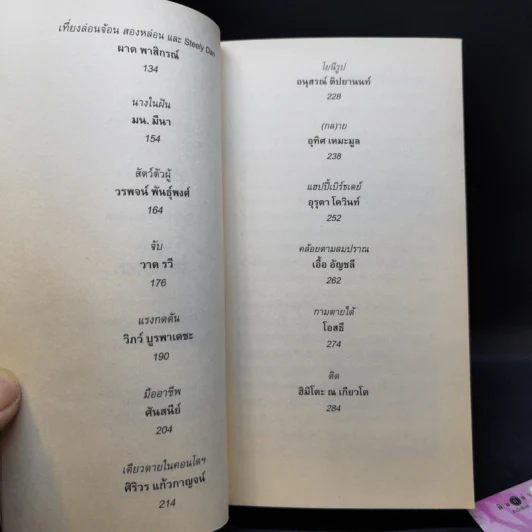 เที่ยงล่อนจ้อน สองหล่อน และ Steely Dan
ผาด พาสิกรณ์
134
นางในฝัน
มน. มีนา
154
สัตว์ตัวผู้
วรพจน์ พันธุ์พงศ์
164
จับ
วาด รวี
176
แรงกดดัน
วิภว์ บูรพาเดชะ
190
มืออาชีพ
ศันสนีย์
204
เดียวดายในคอนโดฯ
ศิริวร แก้วกาญจน์
214
โยนีรูป
อนุสรณ์ ติปยานนท์
228
(กล)าย
อุทิศ เหมะมูล
238
แฮปปี้เบิร์ธเดย์
อุรุดา โควินท์
252
คล้อยตามลมปราณ
เอื้อ อัญชลี
262
กามตายใต้
โอสธี
274
ติด
ฮิมิโตะ ณ เกียวโต
284